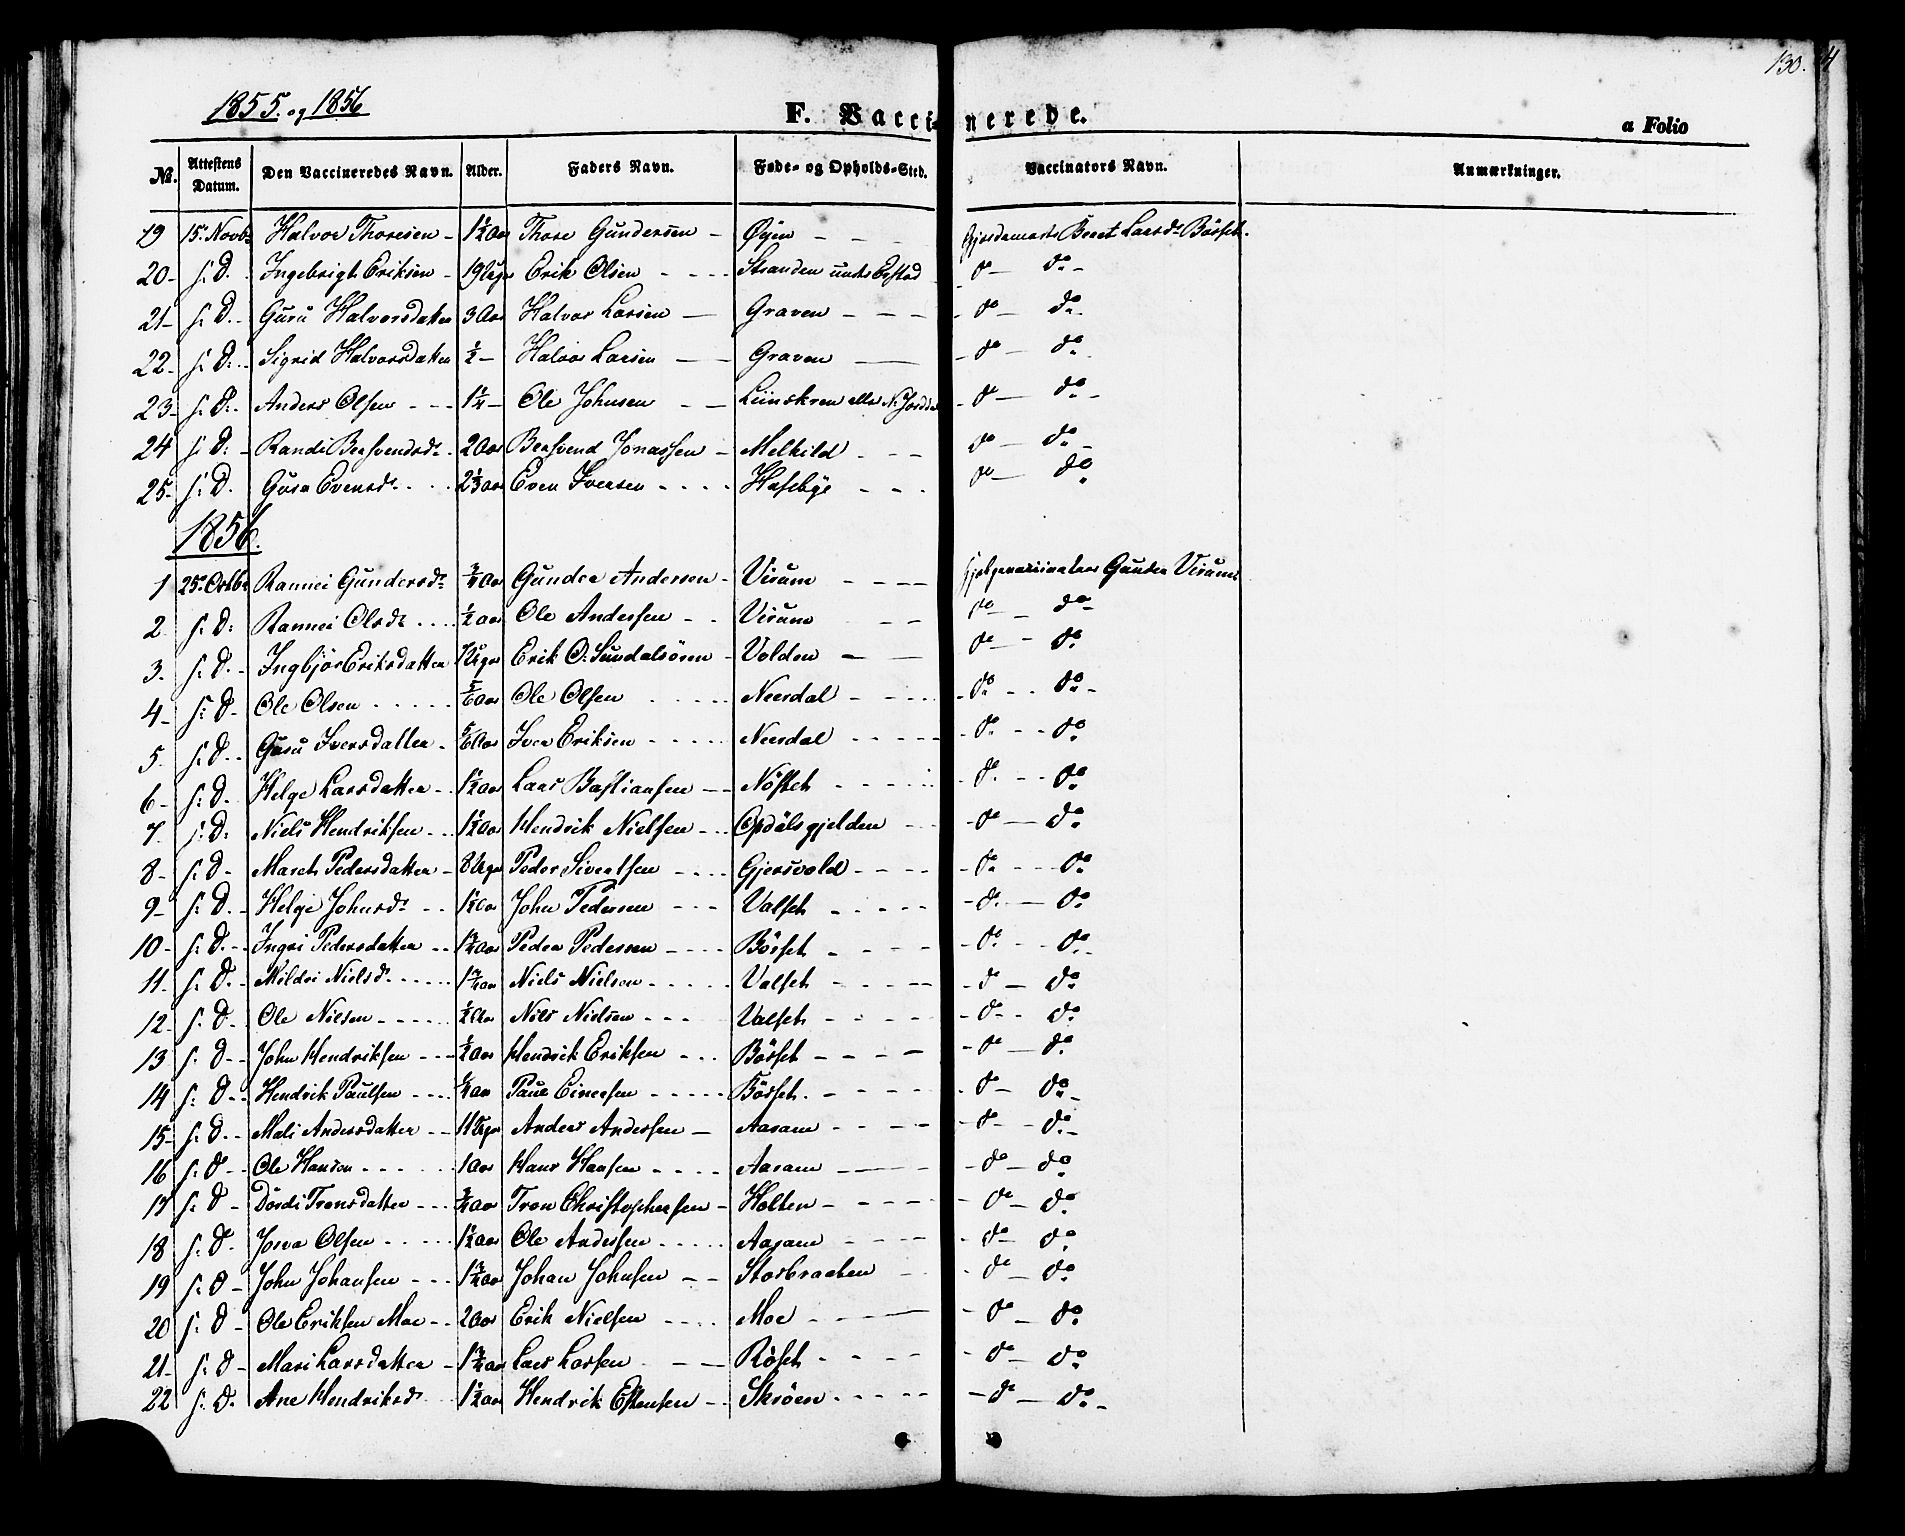 130.
1855. og 1856
F. Vaccinerede.
a Folio
No. Attestens Datum. Den Vaccineredes Navn. Alder. Faders Navn. Føde- og Opholds-Sted. Vaccinators Navn. Anmærkninger.
19 15de Novbr Halvor Thoresen - 1½ Aar Thore Gundersen - Øyen - - - Gjordemoder Beret Larsdr Börset.
20- s: D. - Ingebrigt Eriksen - 19 Uger Erik Olsen - - - - Straanden - do - do -
21- s: D. - Guru Halvorsdatter 3 Aar Halvor Larsen - Graven - - - - do - do.
22- s: D. - Sigrid Halvorsdatter ½ - Halvor Larsen - - Graven - - do - do.
23- s: D. - Anders Olsen - - - 1¼ - Ole Johnsen - - - do - do -
24 s: D: - Randi Bersvendsdr. 2 Aar Bersvend Jonassen - Melkild - - - do - do -
25- s: D. Guru Evensdr. - - 2⅓ Aar Even Iversen - - - - Hasebye - - - do - do
1856.
1 25de Octbr Rannei Gundersdr ¾ Aar Gunder Andersen - Virum - - - - Hjelpevaccinateur Gunder Virum
2 s: D: Rannei Olsdr .... ½ Aar Ole Andersen - - Virum - - do - do -
3. s: D. - Ingbjør Eriksdatter Uger Erik O. Sundalsören - Volden - - do - do.
4- s: D - Ole Olsen ..... 5/6 Aar Ole Olsen ..... Neerdal - - - - do - - do -
5. s: D. - Guru Iversdatter - 5/6 Aar Iver Eriksen - - - - Neerdal - - - - - do - - - do.
6- s: D. Helge Larsdatter - 1½ Aar Lars Bastiansen - - Nöstet - - - - - do - - - do
7. s: D: Niels Hendriksen - - 1½ Aar Hendrik Nielsen - - - Opdölsgjelden - - - do - do.
8- s: D - Maret Pedersdatter - 8 Uger Peder Sivertsen - - - - Gjersvold - - - - do - - - do
9- s: D. - Helge Johnsdr - - 1½ Aar John Pedersen - - - Valset - - - - - do - do
10- s: D. - Ingri Pedersdatter - - Aar Peder Pedersen - - - - Börset - - - - do - - do.
11- s: D. - Mildri Nielsdr - - - - Aar Niels Nielsen - - - - - Valset - - - - do - do
12- s: D - Ole Nilsen - - - - - ½ Aar Nils Nielsen - - - Valset - - - - - do - - do.
13 s: D - - John Hendriksen - - - ½ Aar Hendrik Eriksen - - - Börset - - - - - do - do.
14 s: D - - Hendrik Paulsen - - - - Aar Paul Einersen - - - - - Börset. - - - - do - do -
15- s: D. - Mali Andersdatter - - 11 Uger Anders Andersen - Aasam - - - - do - - do -
16 s: D - - Ole Hansen - - - - - 1 Aar Hans Hansen - - - - Aasam - - - - do - do
17 s: D - Dordi Tronsdatter - - - ¾ Aar Tron Christophersen - Holten - - - - - do - do
18 s: D. Olsen - - - - - 1½ Aar Ole Andersen - - - - - Aasam - - - - do - do
19 s: D - John Johansen - - - 1¾ Aar Johan Johnsen - - Storbraaten - - do - do
20 s: D - Ole Eriksen Moe - - 2 Aar Erik Nielsen - - - - Moe - - - - do - do.
21- s: D - Mari Larsdatter - 1¾ Aar Lars Larsen. - - - Röset - - - - do - do
22 s: D. Ane Hendriksdr 1½ Aar Hendrik Estensen - - Skröen. - - - - do - do -